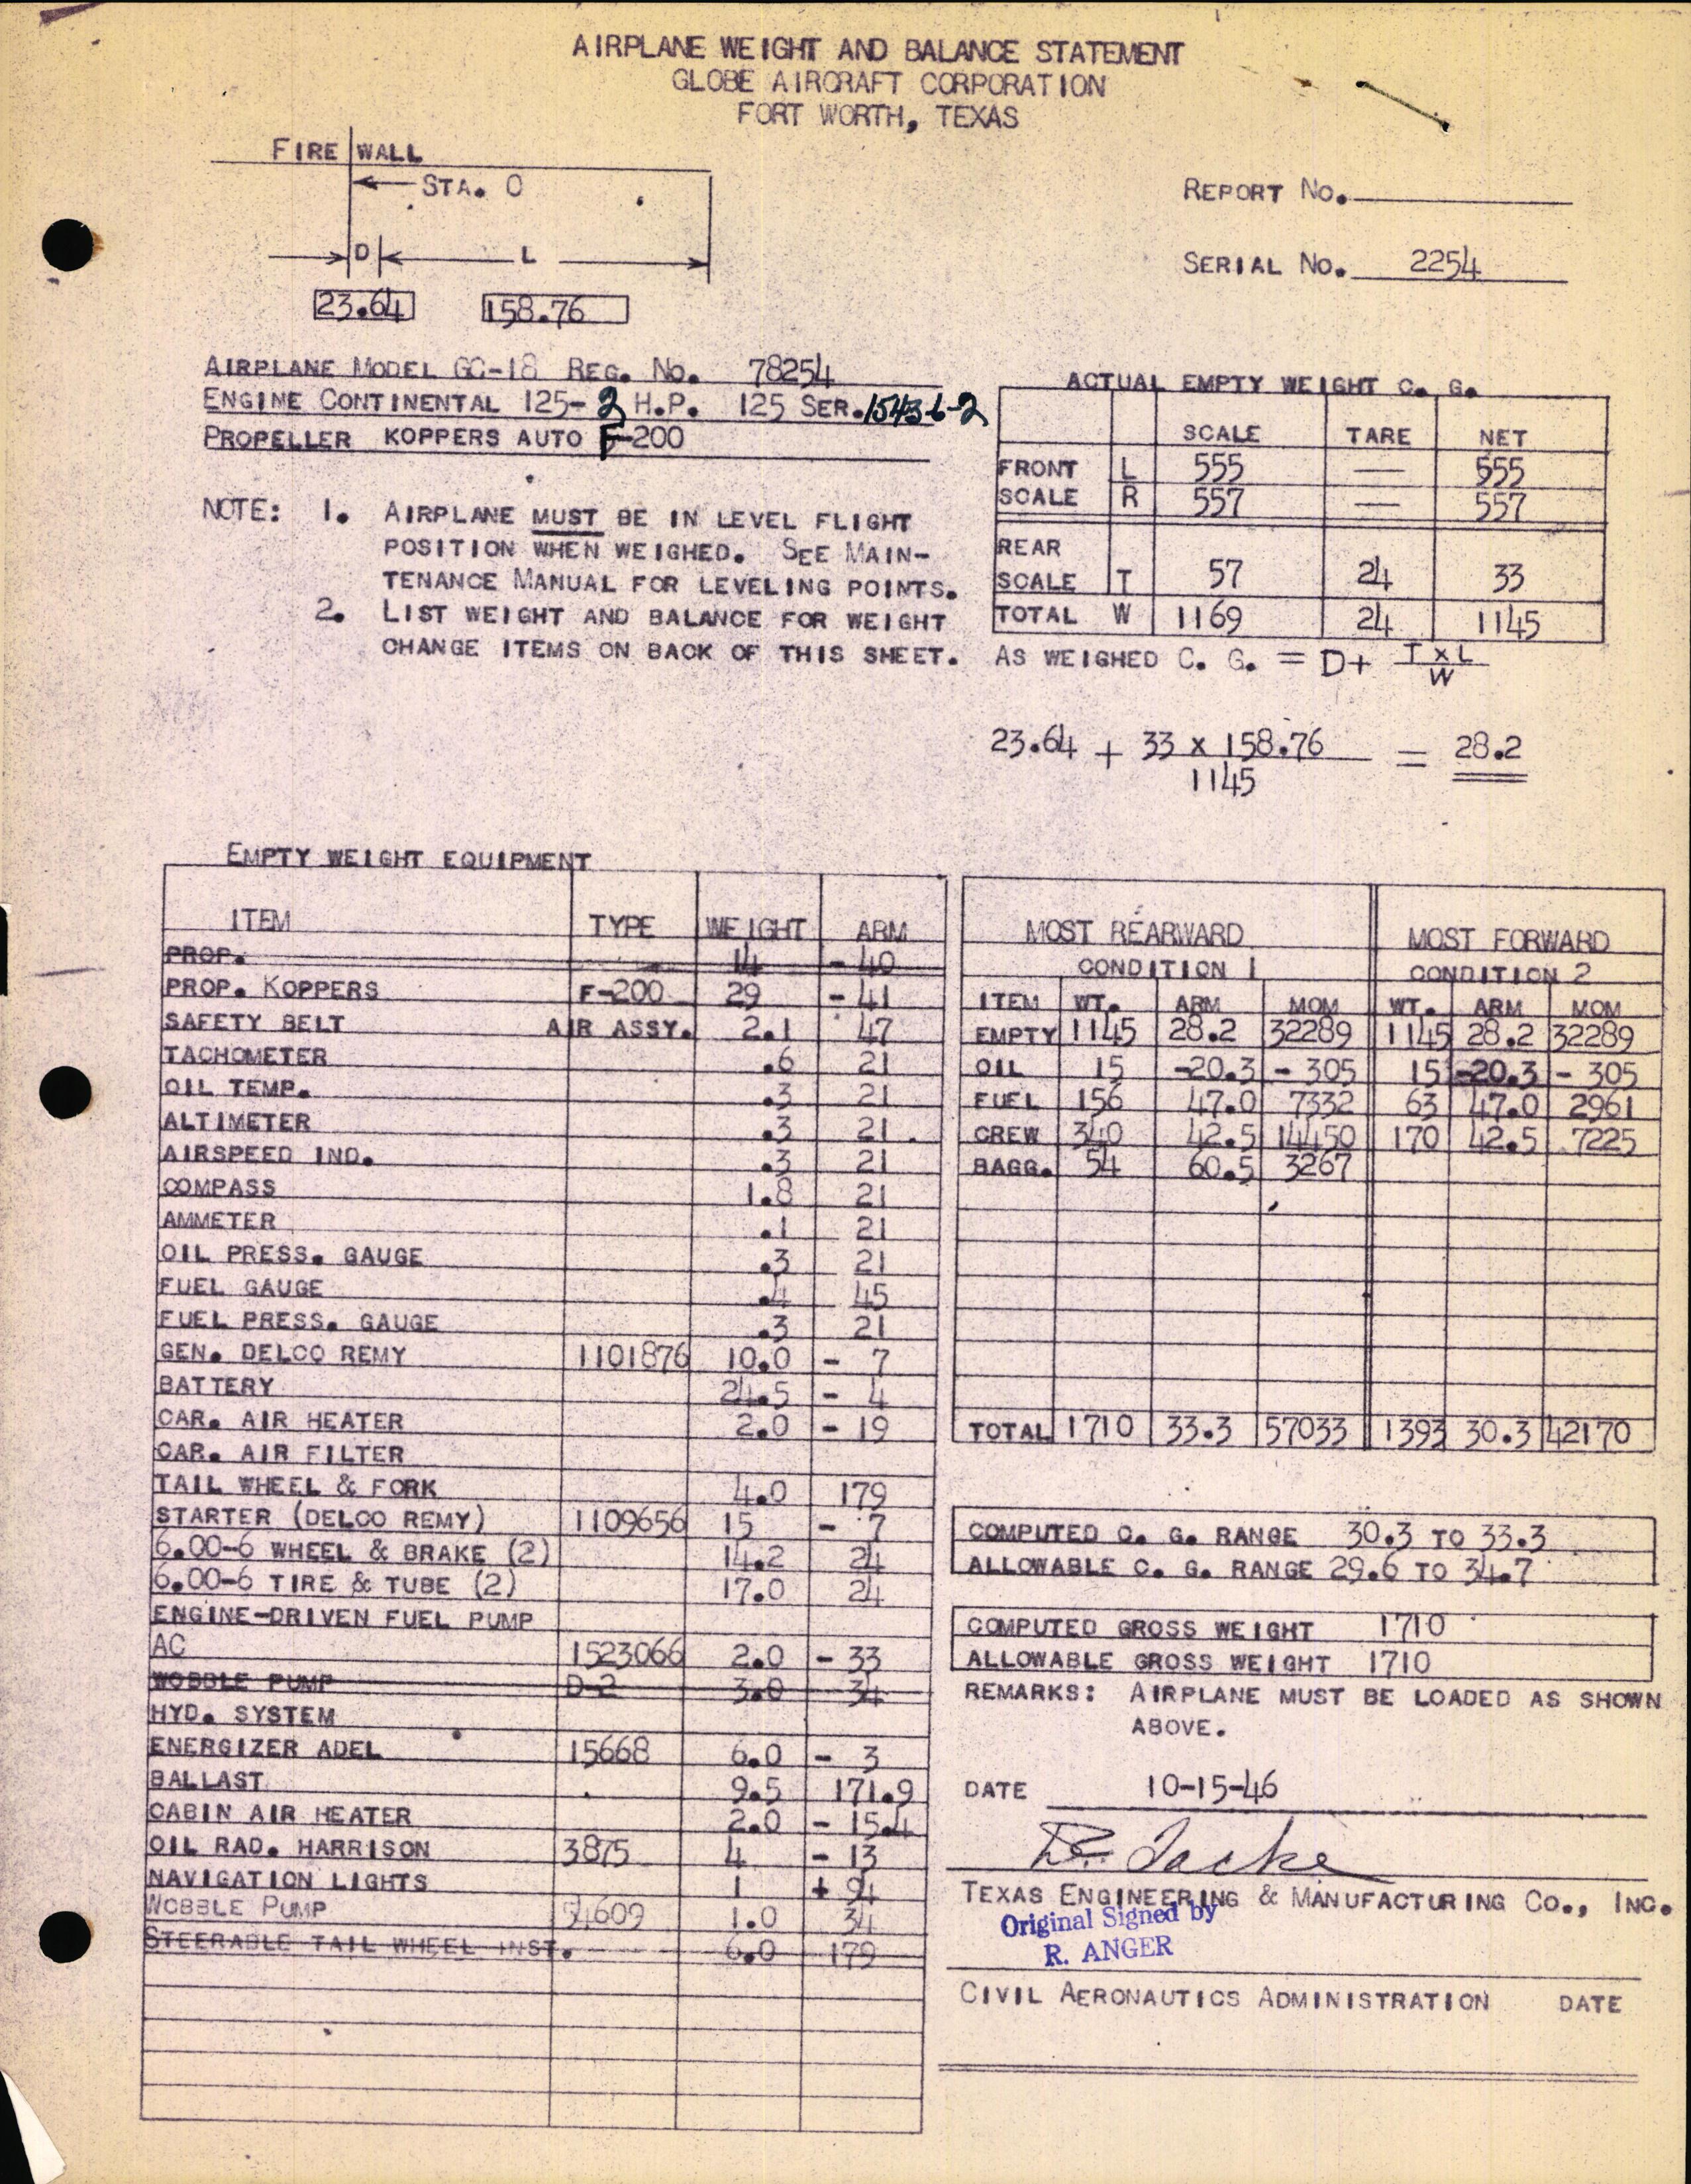 AIRPLANE WEIGHT AND BALANCE STATEMENT
GLOBE AIRCRAFT CORPORATION
FORT WORTH, TEXAS
FIRE WALL
STA. 0
D L
23.64 158.76
REPORT NO.
SERIAL NO. 2254
AIRPLANE MODEL GC-1B REG. NO. 78254
ENGINE CONTINENTAL 125-2 H.P. 125 SER. 15436-2
PROPELLER KOPPERS AUTO F-200
NOTE: 1. AIRPLANE MUST BE IN LEVEL FLIGHT
POSITION WHEN WEIGHED. SEE MAIN-
TENANCE MANUAL FOR LEVELING POINTS.
2. LIST WEIGHT AND BALANCE FOR WEIGHT
CHANGE ITEMS ON BACK OF THIS SHEET.
ACTUAL EMPTY WEIGHT C. G.
SCALE TARE NET
FRONT L 555 — 555
SCALE R 557 — 557
REAR
SCALE T 57 24 33
TOTAL W 1169 24 1145
AS WEIGHED C. G. = D+ T x L
W
23.64 + 33 x 158.76 = 28.2
1145
EMPTY WEIGHT EQUIPMENT
ITEM TYPE WEIGHT ARM
PROP. 14 - 40
PROP. KOPPERS F-200 29 - 41
SAFETY BELT AIR ASSY. 2.1 47
TACHOMETER .6 21
OIL TEMP. .3 21
ALTIMETER .3 21
AIRSPEED IND. .3 21
COMPASS 1.8 21
AMMETER .1 21
OIL PRESS. GAUGE .3 21
FUEL GAUGE .4 45
FUEL PRESS. GAUGE .3 21
GEN. DELCO REMY 1101876 10.0 - 7
BATTERY 24.5 - 4
CAR. AIR HEATER 2.0 - 19
CAR. AIR FILTER
TAIL WHEEL & FORK 4.0 179
STARTER (DELCO REMY) 1109656 15 - 7
6.00-6 WHEEL & BRAKE (2) 14.2 24
6.00-6 TIRE & TUBE (2) 17.0 24
ENGINE-DRIVEN FUEL PUMP
AC 1523066 2.0 - 33
WOBBLE PUMP D-2 3.0 34
HYD. SYSTEM
ENERGIZER ADEL 15668 6.0 - 3
BALLAST 9.5 171.9
CABIN AIR HEATER 2.0 - 15.4
OIL RAD. HARRISON 3875 4 - 13
NAVIGATION LIGHTS 1 + 94
WOBBLE PUMP 54609 1.0 34
STEERABLE TAIL WHEEL INST. 6.0 179
MOST REARWARD MOST FORWARD
CONDITION 1 CONDITION 2
ITEM WT. ARM MOM WT. ARM MOM
EMPTY 1145 28.2 32289 1145 28.2 32289
OIL 15 -20.3 - 305 15 -20.3 - 305
FUEL 156 47.0 7332 63 47.0 2961
CREW 340 42.5 14450 170 42.5 7225
BAGG. 54 60.5 3267
TOTAL 1710 33.3 57033 1393 30.3 42170
COMPUTED C. G. RANGE 30.3 TO 33.3
ALLOWABLE C. G. RANGE 29.6 TO 34.7
COMPUTED GROSS WEIGHT 1710
ALLOWABLE GROSS WEIGHT 1710
REMARKS: AIRPLANE MUST BE LOADED AS SHOWN
ABOVE.
DATE 10-15-46
TEXAS ENGINEERING & MANUFACTURING CO., INC.
Original Signed by
R. ANGER
CIVIL AERONAUTICS ADMINISTRATION DATE